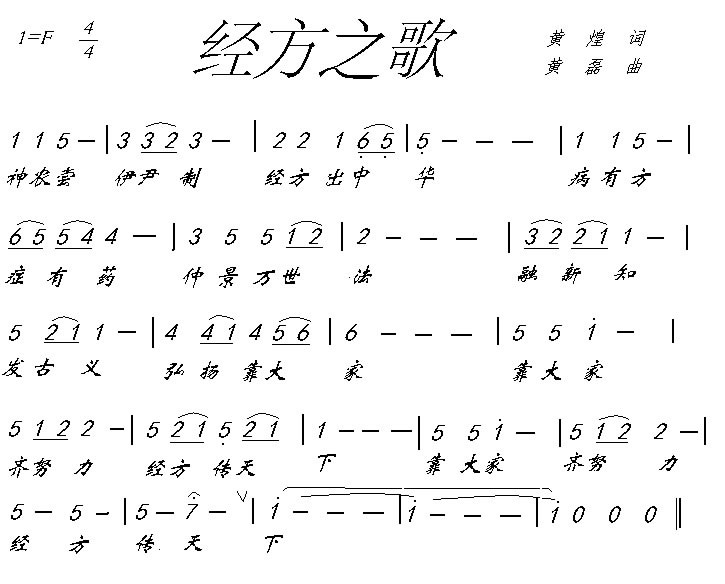 经方之歌
1=F 4/4
黄 煌 词
黄 磊 曲
1 1 5 — | 3 3 2 3 — | 2 2 1 6 5 | 5 — — — | 1 1 5 — |
神农尝 伊尹 制 经方 出中 华 病有方
6 5 5 4 4 — | 3 5 5 1 2 | 2 — — — | 3 2 2 1 1 — |
症有 药 仲景万世 法 融新知
5 2 1 1 — | 4 4 1 4 5 6 | 6 — — — | 5 5 i — |
发古义 弘扬靠大 家 靠大家
5 1 2 2 — | 5 2 1 5 2 1 | 1 — — — | 5 5 i — | 5 1 2 2 — |
齐努力 经方传天 下 靠大家 齐努 力
5 — 5 — | 5 — 7 — ∨ | i — — — | i — — — | i 0 0 0 ‖
经 方 传 天 下